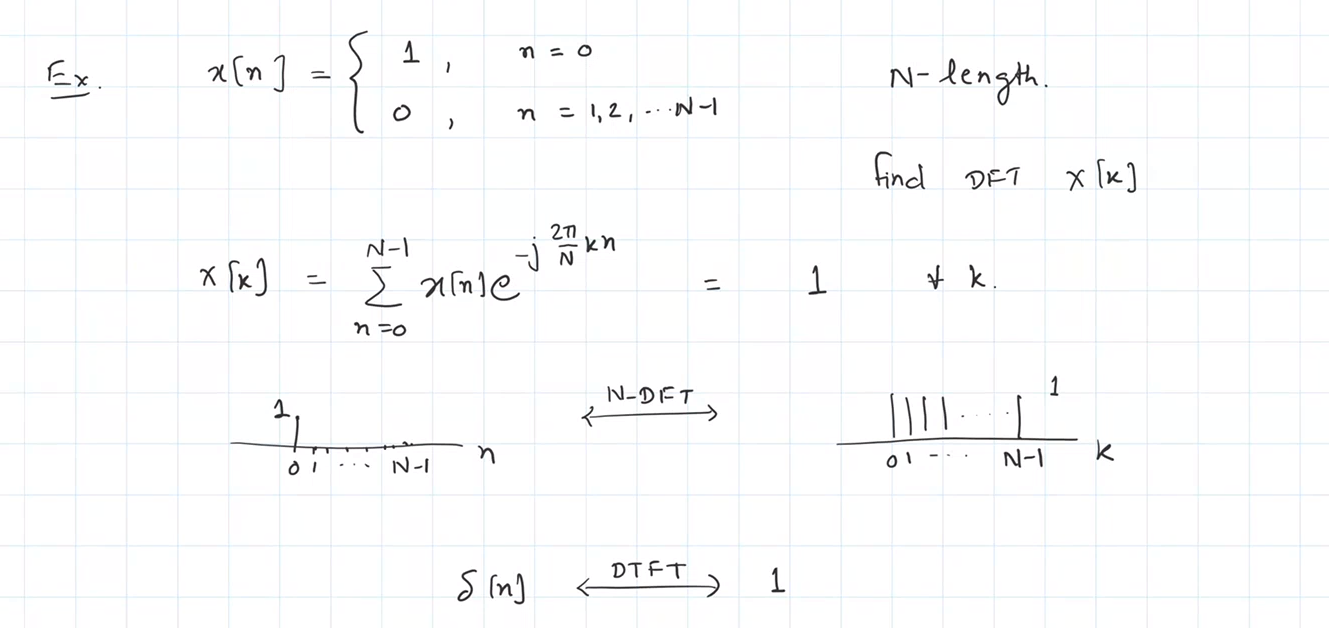 Ex. x[n] = { 1 , n = 0
0 , n = 1,2, ... N-1
N-length.
find DFT X[k]
X[k] = \sum_{n=0}^{N-1} x[n] e^{-j \frac{2π}{N} kn} = 1 ∀ k.
1
0 1 ... N-1 n
N-DFT
1
0 1 - ... N-1 k
δ[n] <-- DTFT --> 1